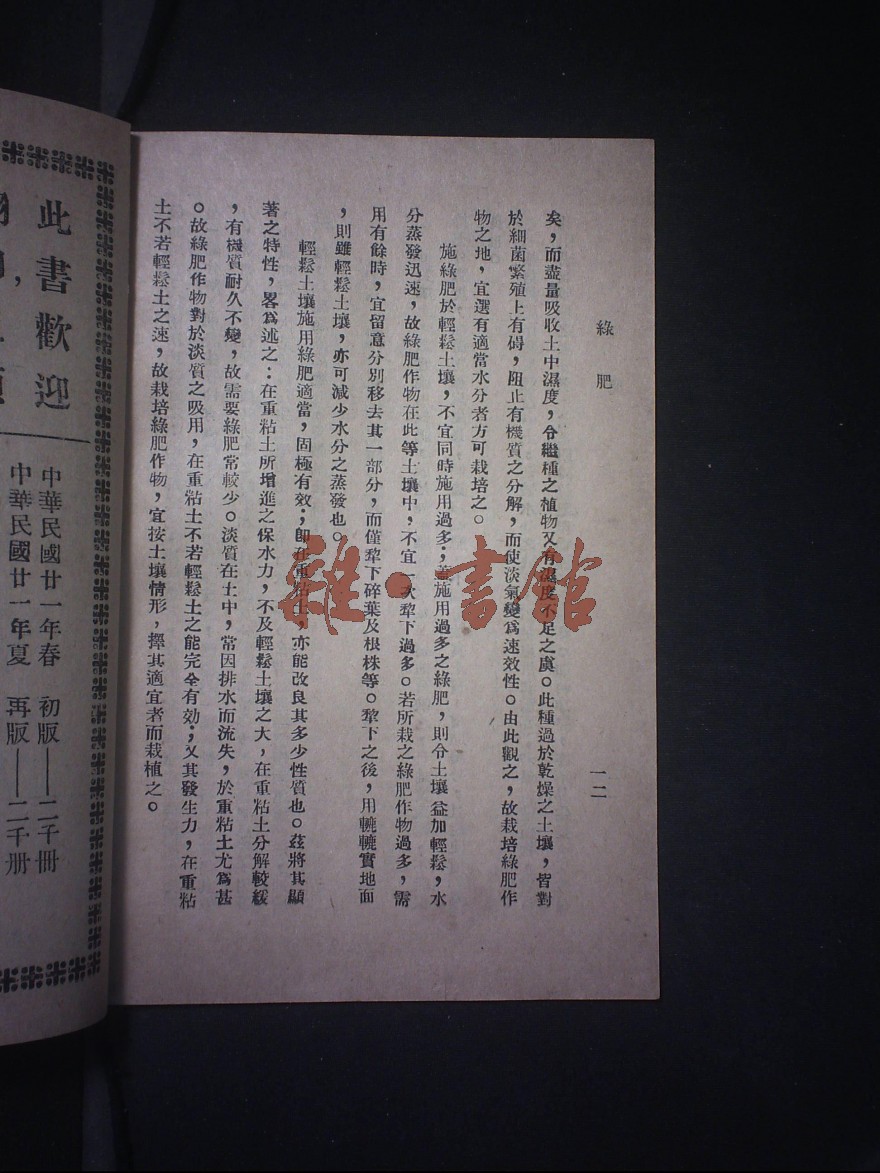 綠肥
一二
矣，而盡量吸收土中濕度，令繼種之植物又有濕度不足之虞。此種過於乾燥之土壤，皆對
於細菌繁殖上有碍，阻止有機質之分解，而使淡氣變爲速效性。由此觀之，故栽培綠肥作
物之地，宜選有適當水分者方可栽培之。
施綠肥於輕鬆土壤，不宜同時施用過多；蓋施用過多之綠肥，則令土壤益加輕鬆，水
分蒸發迅速，故綠肥作物在此等土壤中，不宜一次犂下過多。若所栽之綠肥作物過多，需
用有餘時，宜留意分別移去其一部分，而僅犂下碎葉及根株等。犂下之後，用轆轆實地面
，則雖輕鬆土壤，亦可減少水分之蒸發也。
輕鬆土壤施用綠肥適當，固極有效；卽在重粘土，亦能改良其多少性質也。茲將其顯
著之特性，畧爲述之：在重粘土所增進之保水力，不及輕鬆土壤之大，在重粘土分解較緩
，有機質耐久不變，故需要綠肥常較少。淡質在土中，常因排水而流失，於重粘土尤爲甚
。故綠肥作物對於淡質之吸用，在重粘土不若輕鬆土之能完全有効；又其發生力，在重粘
土不若輕鬆土之速，故栽培綠肥作物，宜按土壤情形，擇其適宜者而栽植之。
雜·書館
此書歡迎
中華民國廿一年春 初版——二千冊
中華民國廿一年夏 再版——二千册